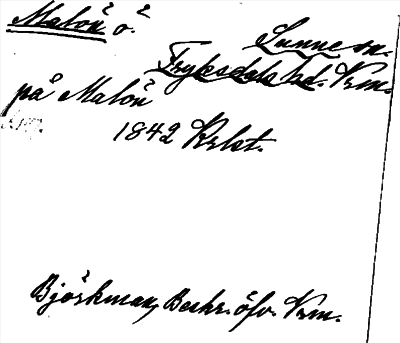 Malön ö.
Sunne sn.
Fryksdals hd. Vrm.
på Malön
1842 Krlet.
Björkman, Beskr. öfv. Vrm.